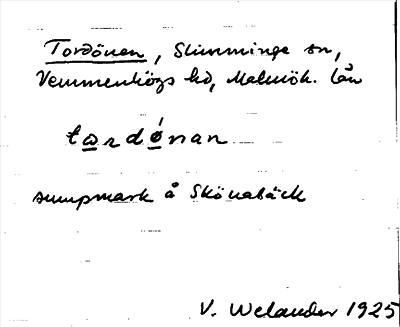 Tordönen, Slimminge sn,
Vemmenhögs hd, Malmöh. län
tardǿnan
sumpmark å Skönabäck
V. Welander 1925